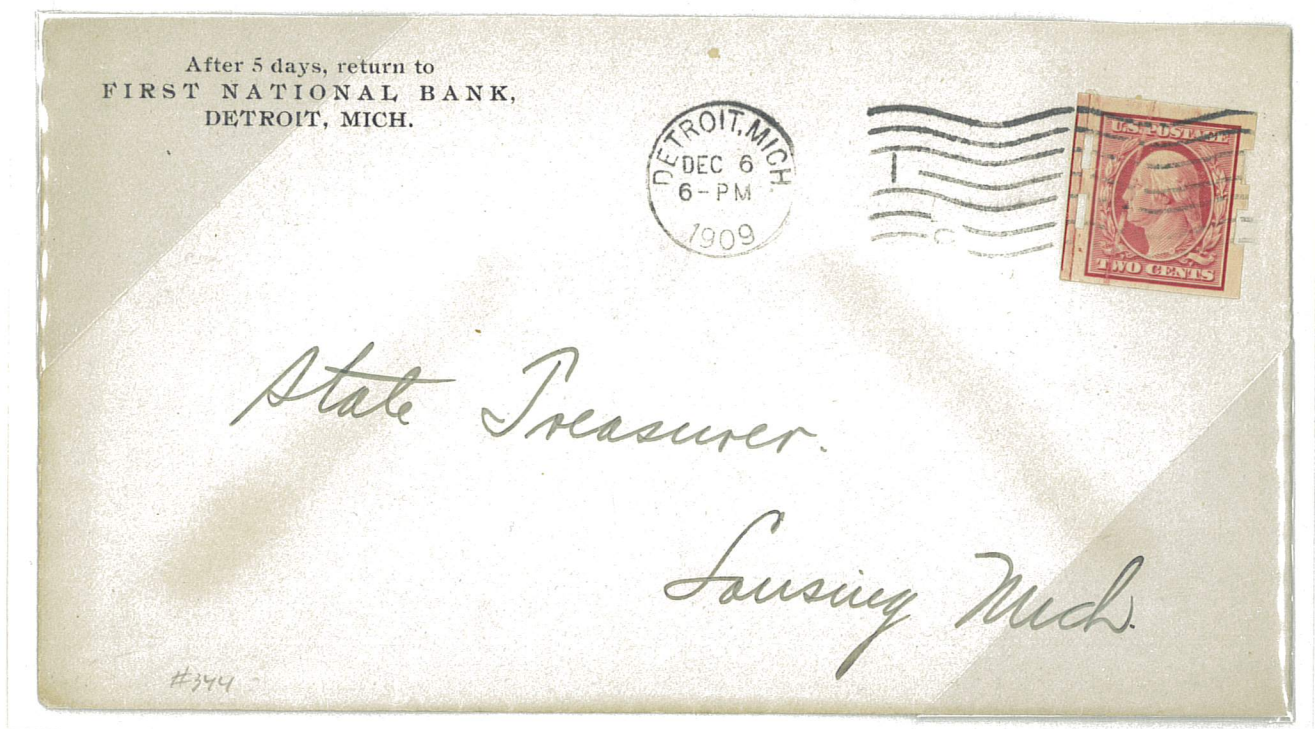 After 5 days, return to
FIRST NATIONAL BANK,
DETROIT, MICH.
DETROIT, MICH.
DEC 6
6-PM
1909
1
C
U.S. POSTAGE
TWO CENTS
State Treasurer.
Lansing Mich.
#344